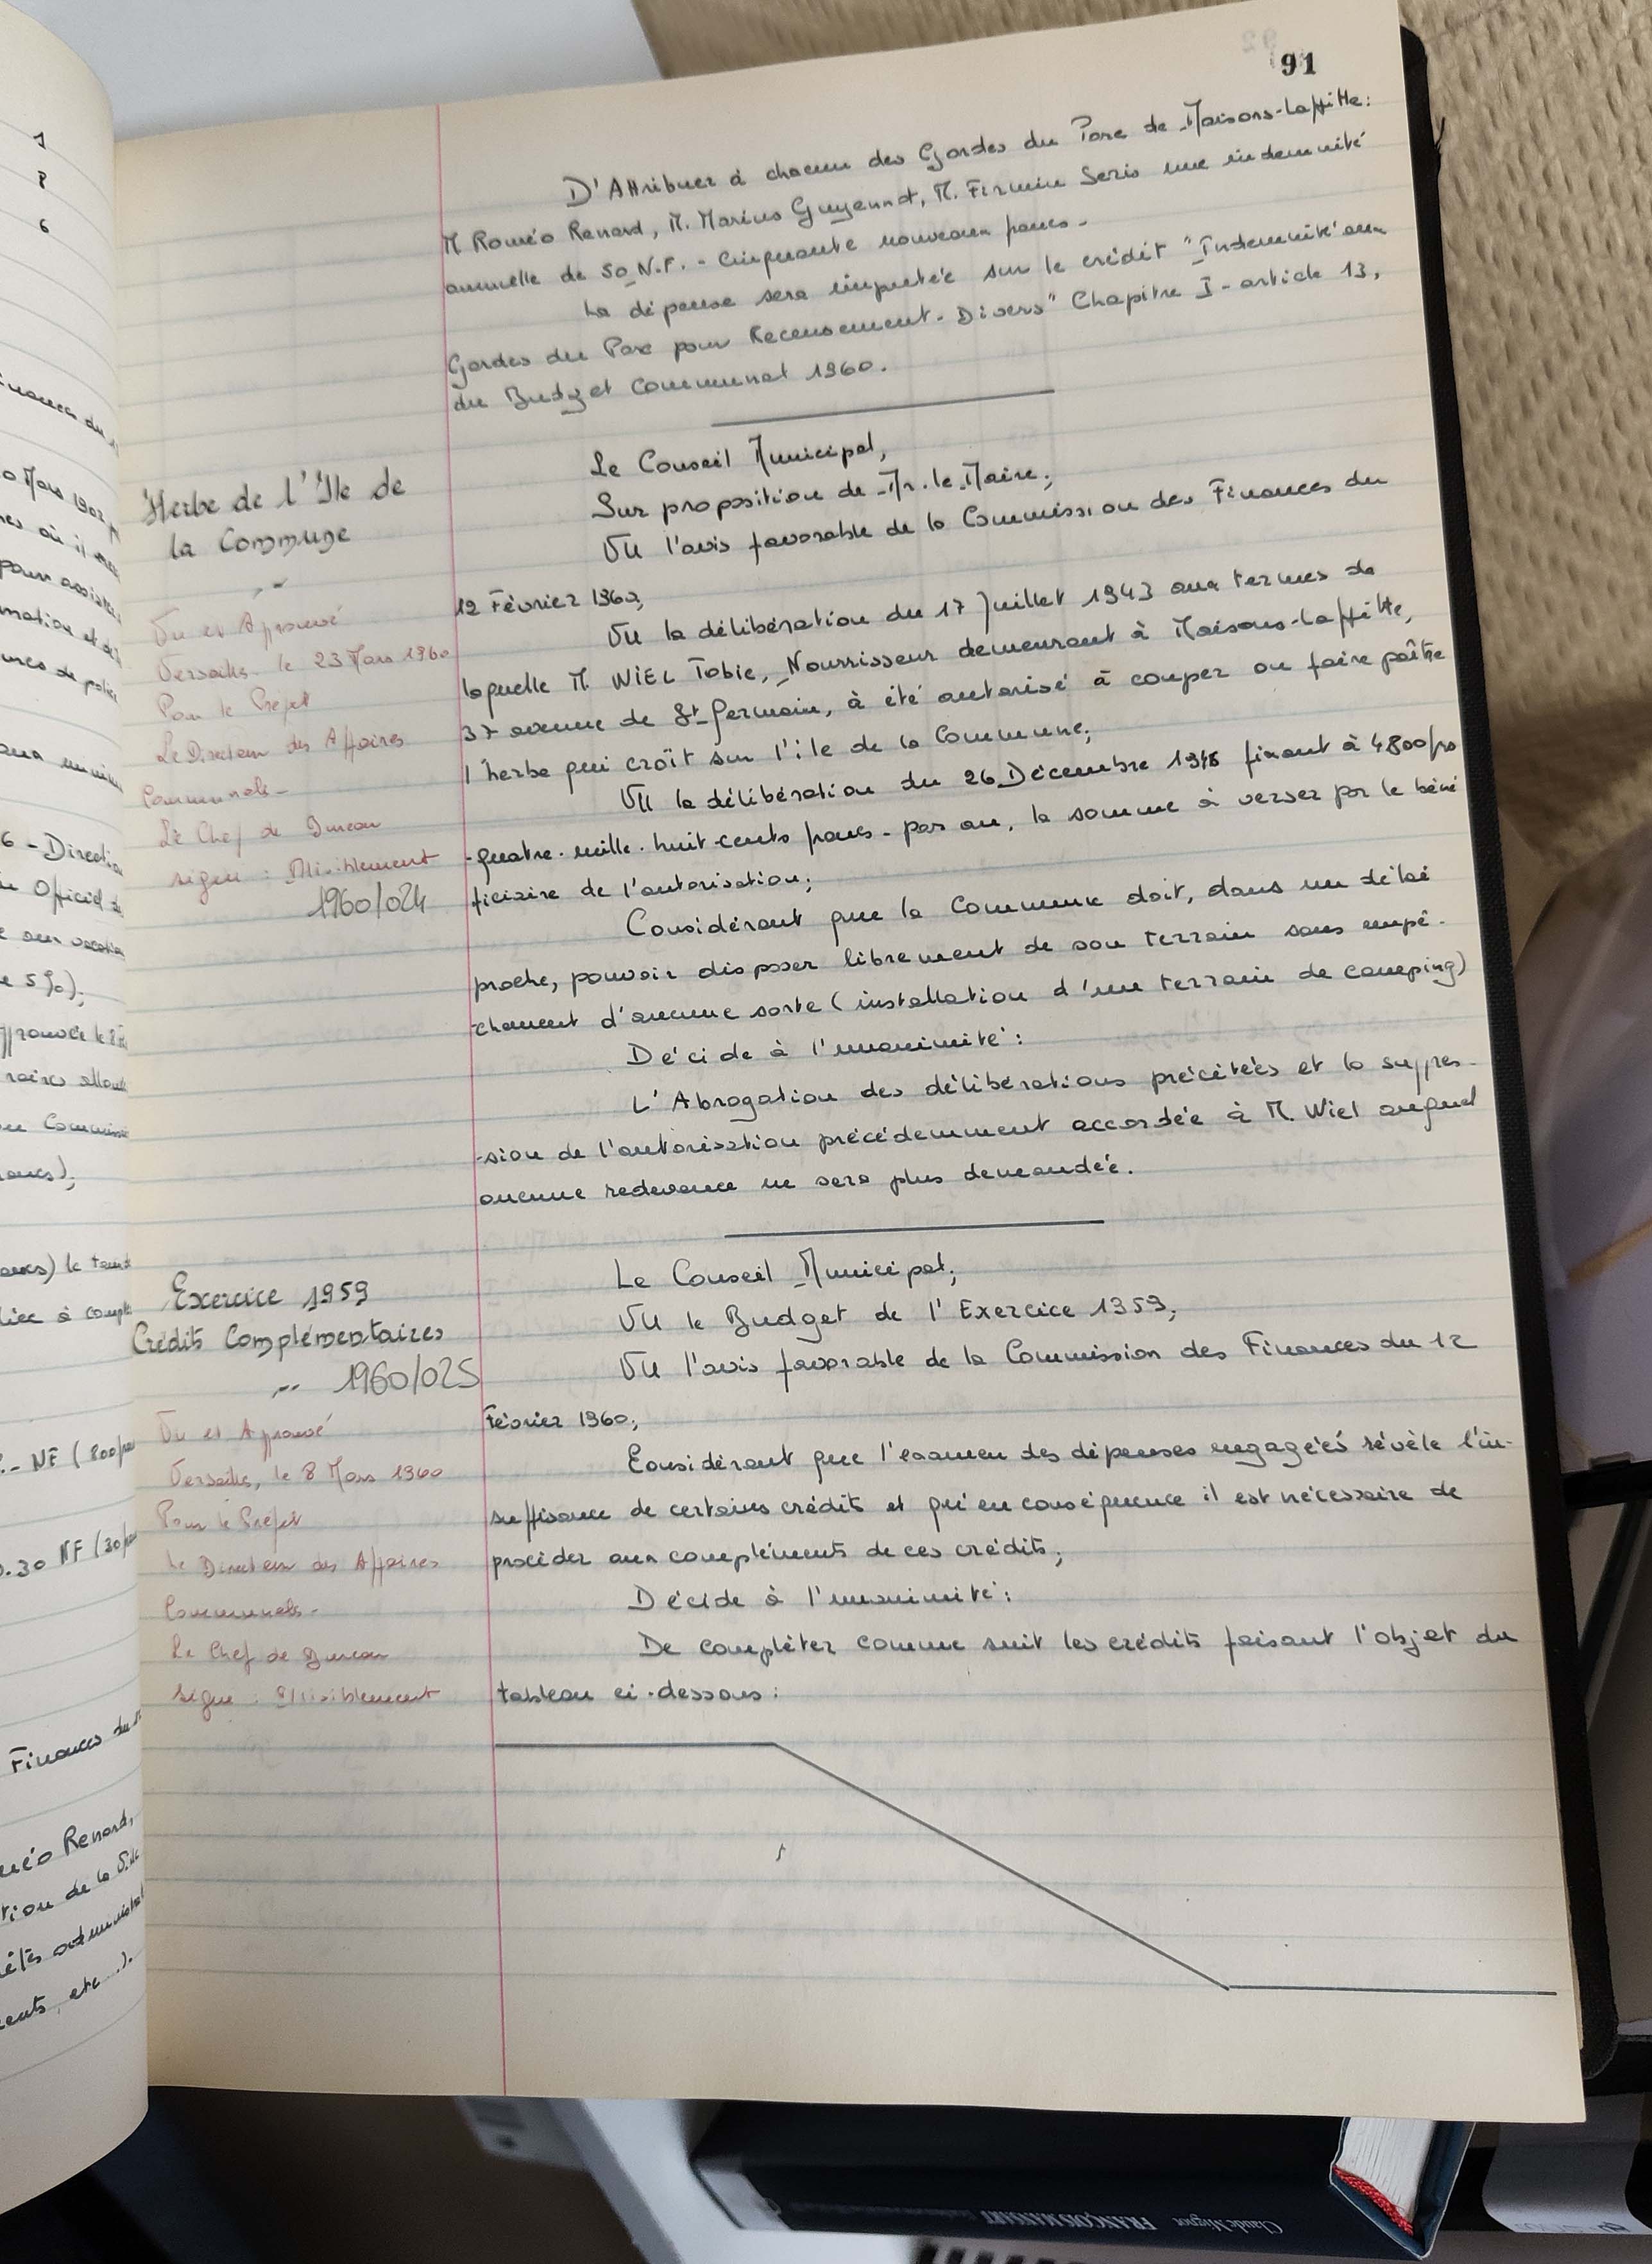 91
D'Attribuer à chacun des Gardes du Parc de Maisons-Laffitte:
M Roméo Renard, M. Marius Guyennot, M. Firmin Seris une indemnité
annuelle de 50 N.F. - cinquante nouveaux francs -
La dépense sera imputée sur le crédit "Indemnité aux
Gardes du Parc pour Recensement - Divers" Chapitre I - article 13,
du Budget Communal 1960.
Herbe de l'Ile de
la Commune
Vu et Approuvé
Versailles le 23 Mars 1960
Pour le Préfet
Le Directeur des Affaires
Communales -
Le Chef de Bureau
signé : Illisiblement
1960/024
Le Conseil Municipal,
Sur proposition de Mr. le Maire;
VU l'avis favorable de la Commission des Finances du
12 Février 1960,
VU la délibération du 17 Juillet 1943 aux termes de
laquelle M. WIEL Tobie, Nourrisseur demeurant à Maisons-Laffitte,
37 avenue de St Germain, à été autorisé à couper ou faire paître
l'herbe qui croît sur l'île de la Commune;
VU la délibération du 26 Décembre 1948 fixant à 4800 frs
- quatre. mille. huit. cents francs - par an, la somme à verser par le béné
ficiaire de l'autorisation;
Considérant que la Commune doit, dans un délai
proche, pouvoir disposer librement de son terrain sans empê-
chement d'aucune sorte (installation d'un terrain de camping)
Décide à l'unanimité :
L'Abrogation des délibérations précitées et la suppres-
-sion de l'autorisation précédemment accordée à M. Wiel auquel
aucune redevance ne sera plus demandée.
Exercice 1959
Crédits Complémentaires
1960/025
Vu et Approuvé
Versailles, le 8 Mars 1960
Pour le Préfet
Le Directeur des Affaires
Communales -
Le Chef de Bureau
Signé : Illisiblement
Le Conseil Municipal,
VU le Budget de l'Exercice 1959,
VU l'avis favorable de la Commission des Finances du 12
Février 1960;
Considérant que l'examen des dépenses engagées révèle l'in-
suffisance de certains crédits et qu'en conséquence il est nécessaire de
procéder aux compléments de ces crédits;
Décide à l'unanimité :
De compléter comme suit les crédits faisant l'objet du
tableau ci-dessous :
Claude Mignot
FRANÇOIS MANSART